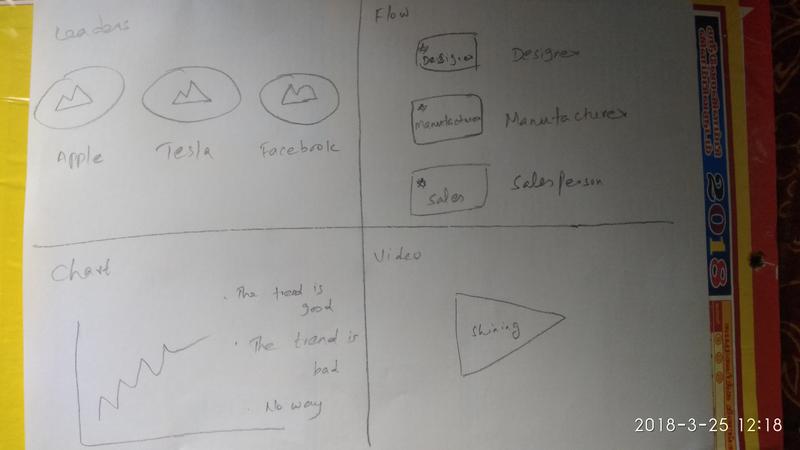 Leaders
Apple
Tesla
Facebook
Flow
Designer
Designer
Manufacturer
Manufacturer
Sales
Sales Person
Chart
The trend is
good
The trend is
bad
No way
Video
Shining
2018
2018-3-25 12:18